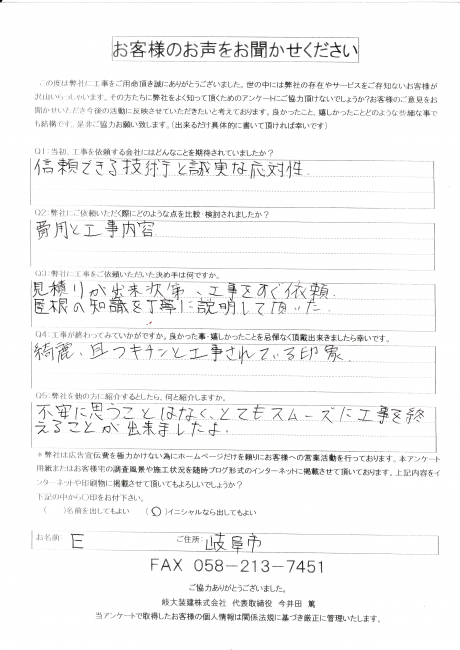 お客様のお声をお聞かせください
この度は弊社に工事をご用命頂き誠にありがとうございました。世の中には弊社の存在やサービスをご存知ないお客様が
沢山いらっしゃいます。その方たちに弊社をよく知って頂くためのアンケートにご協力頂けないでしょうか?お客様のご意見をお
聞かせいただき今後の活動に反映させていただきたいと考えております。良かったこと、嬉しかったことどのような些細な事で
も結構です。是非ご協力お願い致します。(出来るだけ具体的に書いて頂ければ幸いです)
Q1:当初、工事を依頼する会社にはどんなことを期待されていましたか?
信頼できる技術力と誠実な応対性.
Q2:弊社にご依頼いただく際にどのような点を比較・検討されましたか?
費用と工事内容
Q3:弊社に工事をご依頼いただいた決め手は何ですか。
見積りが出来次第、工事をすぐ依頼.
屋根の知識を丁寧に説明して頂いた.
Q4:工事が終わってみていかがですか。良かった事・嬉しかったことを忌憚なく頂戴出来ましたら幸いです。
綺麗、且つキチンと工事されている印象.
Q5:弊社を他の方に紹介するとしたら、何と紹介しますか。
不安に思うことはなく、とてもスムーズに工事を終
えることが出来ましたよ.
*弊社は広告宣伝費を極力かけない為にホームページだけを頼りにお客様への営業活動を行っております。本アンケート
用紙またはお客様宅の調査風景や施工状況を随時ブログ形式のインターネットに掲載させて頂いております。上記内容をイ
ンターネットや印刷物に掲載させて頂いてもよろしいでしょうか?
下記の中から〇印をお付下さい。
( )名前を出してもよい (〇)イニシャルなら出してもよい
お名前: E ご住所: 岐阜市
FAX 058-213-7451
ご協力ありがとうございました。
岐大装建株式会社 代表取締役 今井田 篤
当アンケートで取得したお客様の個人情報は関係法規に基づき厳正に管理いたします。